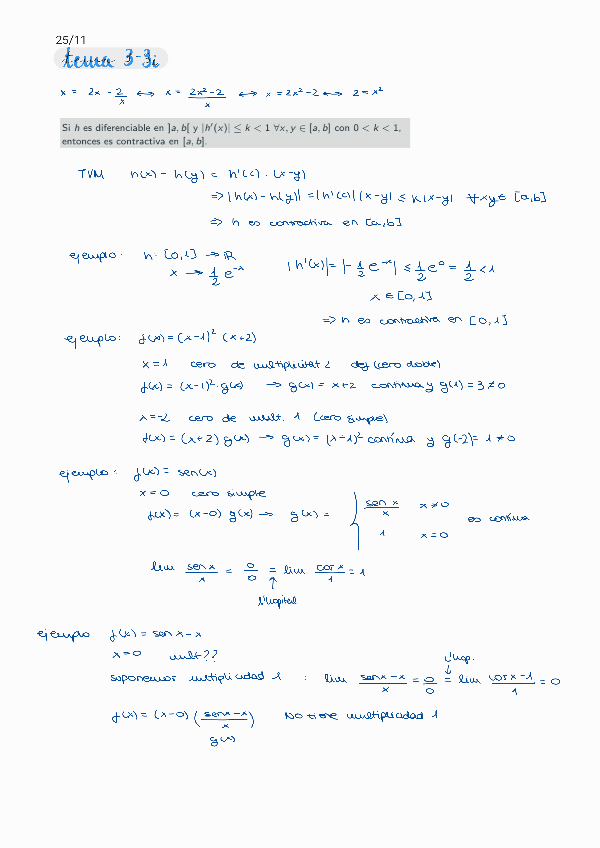 25/11
tema 3-3i
x = 2x - 2/x ⟷ x = (2x²-2)/x ⟷ x = 2x²-2 ⟷ 2 = x²
Si h es diferenciable en ]a, b[ y |h'(x)| ≤ k < 1 ∀x, y ∈ [a, b] con 0 < k < 1,
entonces es contractiva en [a, b].
TVM h(x) - h(y) = h'(c) · (x-y)
⇒ |h(x) - h(y)| = |h'(c)| |x-y| ≤ k|x-y| ∀xy ∈ [a,b]
⇒ h es contractiva en [a,b]
ejemplo: h: [0,1] → ℝ
x → 1/2 e^-x |h'(x)| = |-1/2 e^-x| ≤ 1/2 e^0 = 1/2 < 1
x ∈ [0,1]
⇒ h es contractiva en [0,1]
ejemplo: f(x) = (x-1)² (x+2)
x = 1 cero de multiplicitat 2 def (cero doble)
f(x) = (x-1)² · g(x) → g(x) = x+2 continua y g(1) = 3 ≠ 0
x = -2 cero de mult. 1 (cero simple)
f(x) = (x+2) g(x) → g(x) = (x-1)² continua y g(-2) = 1 ≠ 0
ejemplo: f(x) = sen(x)
x = 0 cero simple
f(x) = (x-0) g(x) → g(x) = { sen x / x x ≠ 0
1 x = 0 es continua
lim sen x / x = 0/0 = lim cos x / 1 = 1
↑
l'hopital
ejemplo f(x) = sen x - x
x = 0 mult??
l'hop.
suponemos multiplicidad 1 : lim (sen x - x)/x = 0/0 = lim (cos x - 1)/1 = 0
f(x) = (x-0) ((sen x - x)/x) No tiene multiplicidad 1
g(x)